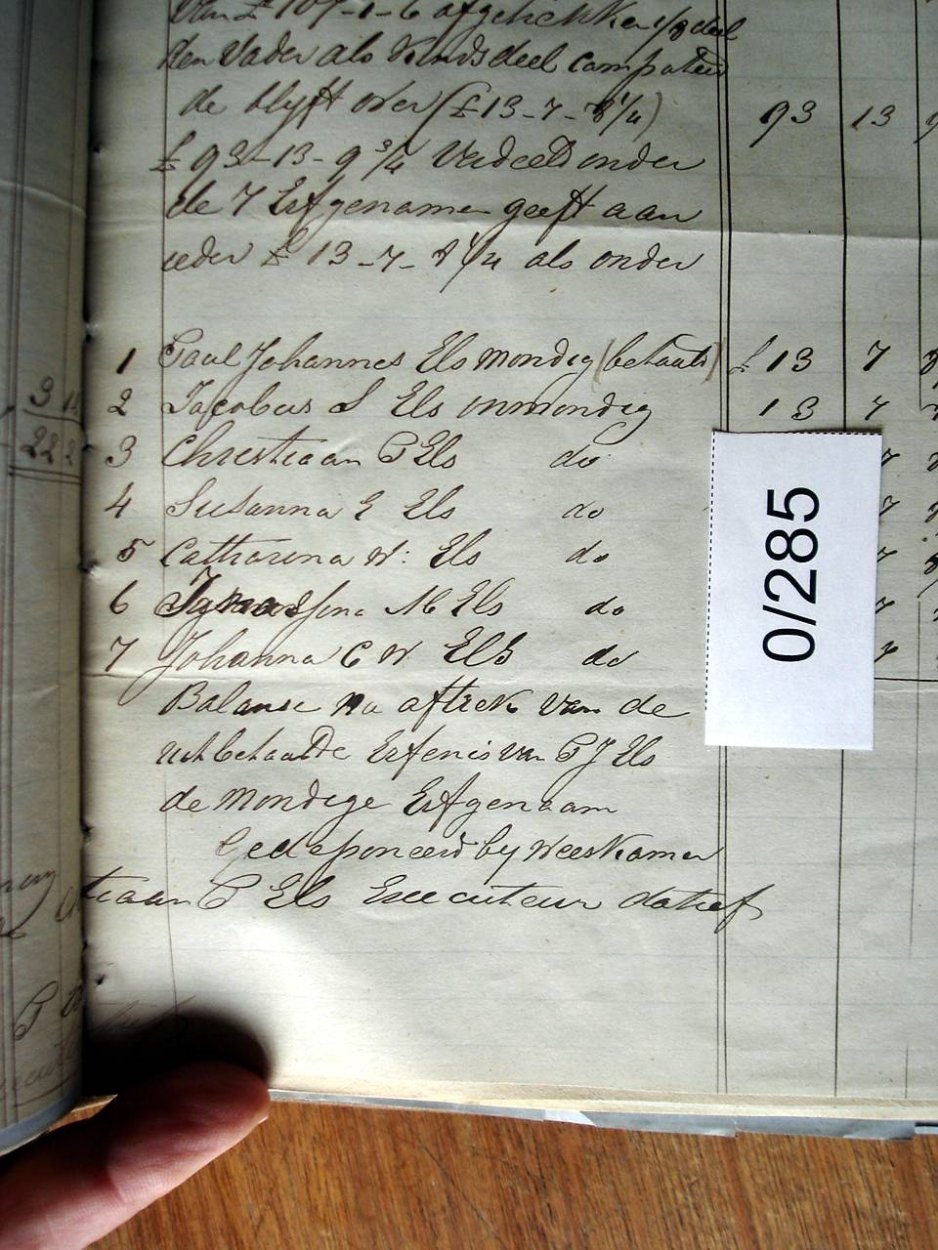 Van £ 107-1-6 afgetrokken 1/8 deel
den Vader als Kindsdeel competeer
de blyft over (£ 13-7-8 1/4) 93 13 9
£ 93-13-9 3/4 Verdeeld onder
de 7 Erfgenamen geeft aan
ieder £ 13-7-8 1/4 als onder
1 Paul Johannes Els mondig (betaald) £ 13 7 8
2 Jacobus S Els onmondig 13 7
3 Christiaan P Els do 7 8
4 Susanna E Els do 7 8
5 Catharina W: Els do 7 8
6 M Els do 7
7 Johanna C W Els do 7
Balanse na aftrek van de
uitbetaalde Erfenis van P J Els
de Mondige Erfgenaam
Gedeponeerd by Weeskamer
tiaan P Els Executeur datief
0/285
3 1
22 2